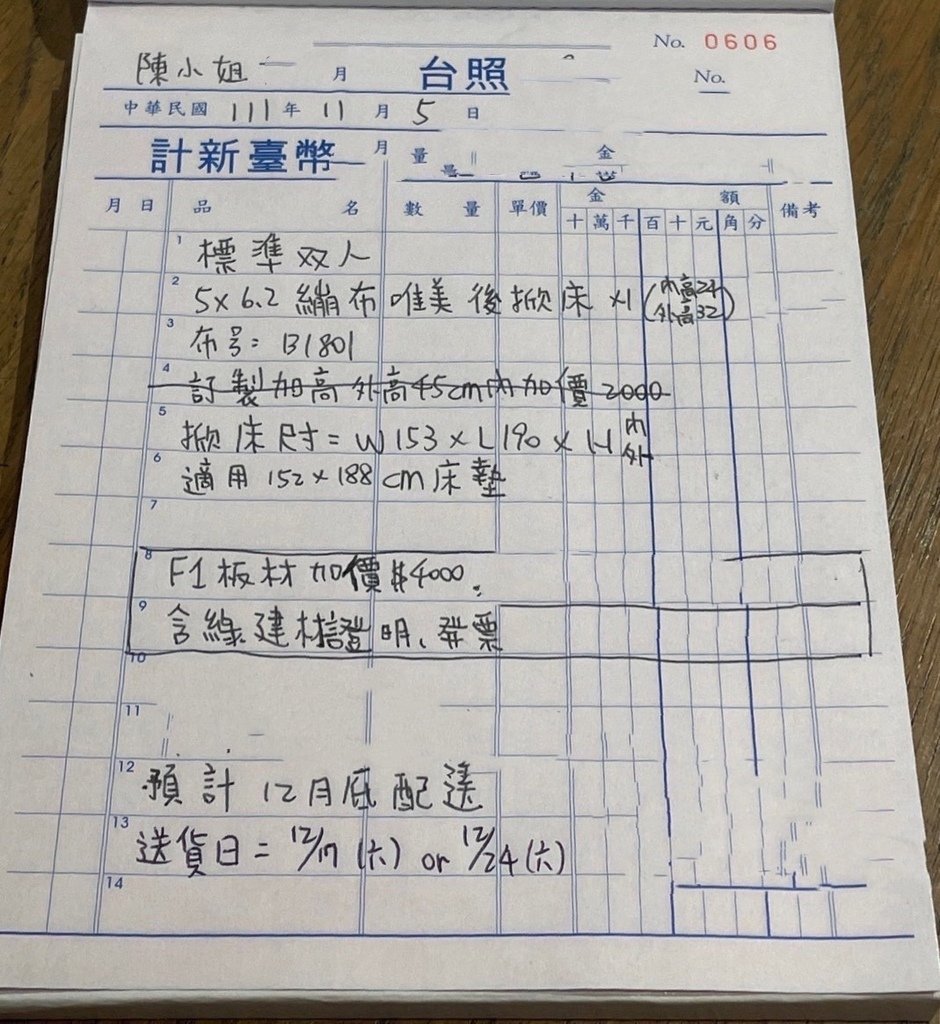 No. 0606
陳小姐 月 台照 No.
中華民國 111 年 11 月 5 日
計新臺幣 月 量 金
月 日 品 名 數 量 單價 金 額 備考
十 萬 千 百 十 元 角 分
1 標準双人
2 5x6.2 繃布 唯美 後掀床 x1 (內高24 外高32)
3 布号: B1801
4 訂製加高外高45cm內加價 2000
5 掀床尺寸= W153 x L190 x H 內 外
6 適用 152x188 cm床墊
7
8 F1板材加價$4000.
9 含綠建材證明、發票
10
11
12 預計12月底配送
13 送貨日= 12/17 (六) or 12/24 (六)
14